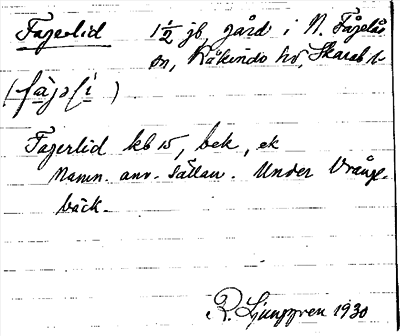 Fagerlid 1 1/2 jb, gård i N. Fågelås
sn, Kåkinds hd, Skarab. l.
Fagerlid kb 15, bek, ek
Namn. anv. sällan. Under Vrånge-
bäck.
R. Ljunggren 1930